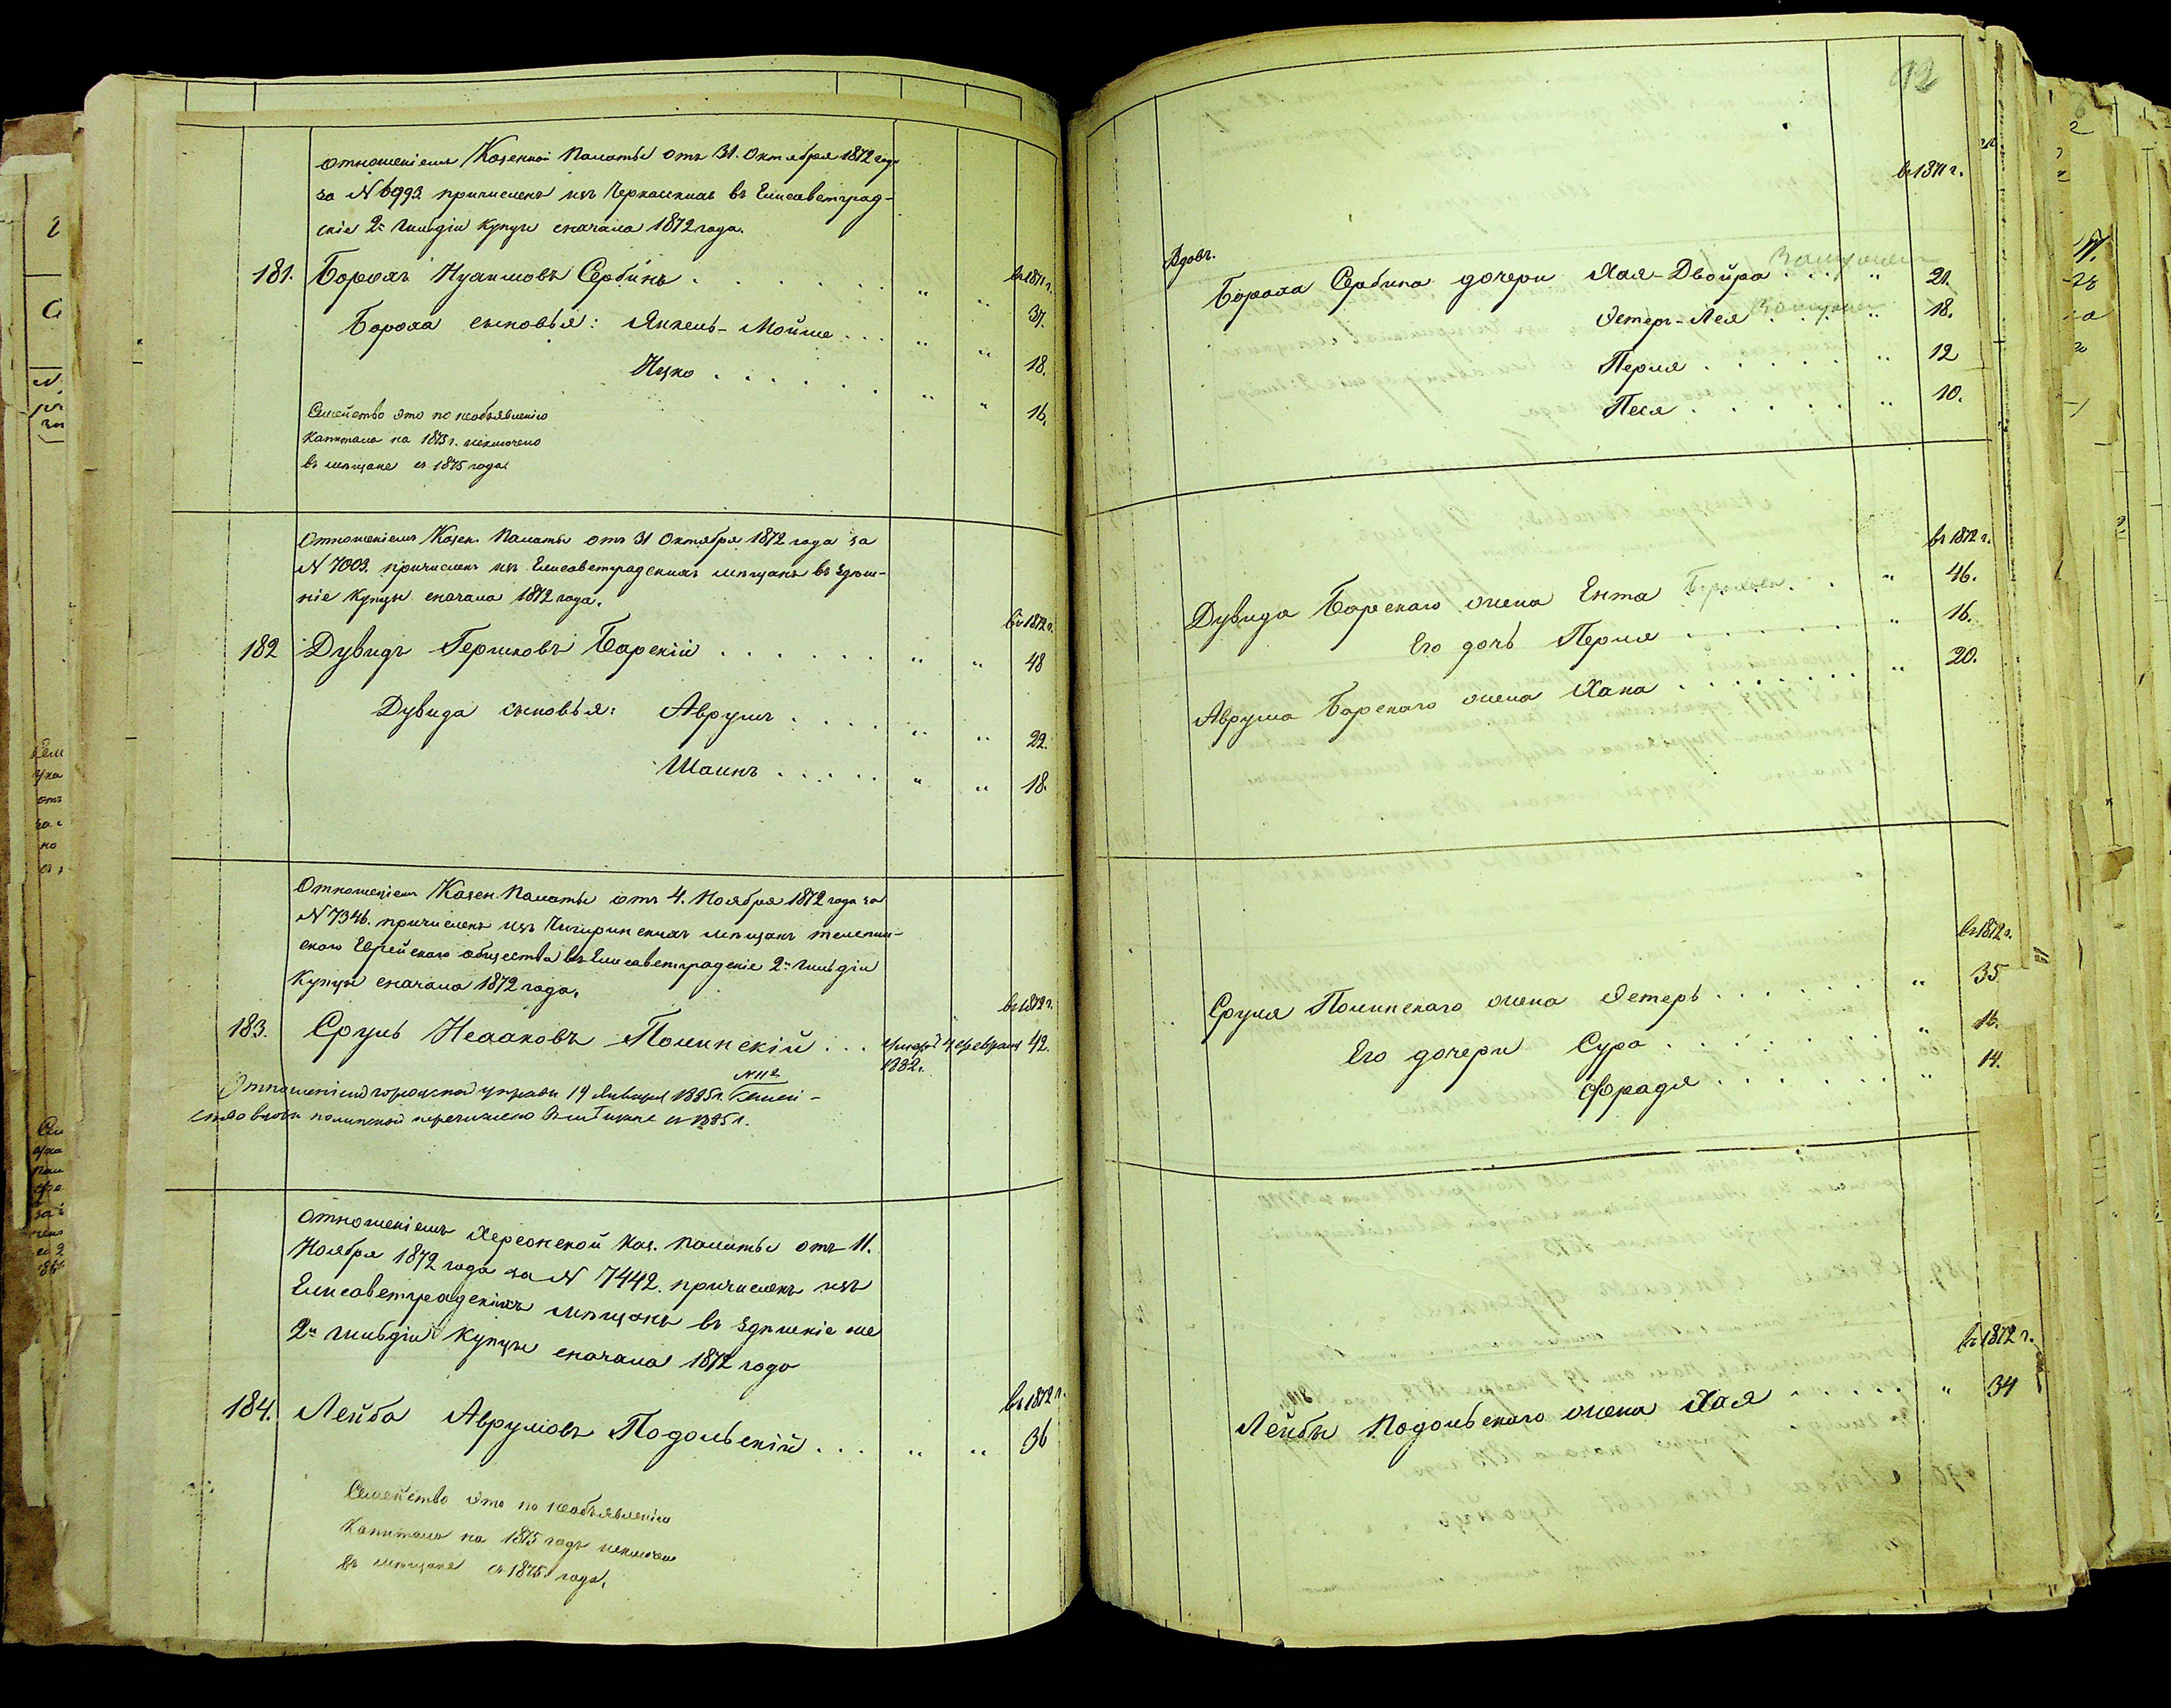 отношеніемъ Казенной Палаты отъ 31. Октября 1872 года
за № 6993. причисленъ изъ Черкасскихъ въ Елисаветград-
скіе 2й Гильдіи купцы сначала 1872 года.
въ 1871 г.
181. Борохъ Нухимовъ Сербинъ . . . . . . " " 37.
Бороха сыновья: Янкель-Мойше . . . " " 18.
Ицко . . . . . . " " 16.
Семейство это по необъявленію
капитала на 1875 г. исключено
въ мещане съ 1875 года.
Отношеніемъ Казен. Палаты отъ 31 Октября 1872 года за
№ 7003. причисленъ изъ Елисаветградскихъ мѣщанъ въ здѣш-
ніе купцы сначала 1872 года.
въ 1872 г.
182 Дувидъ Гершковъ Барскій . . . . . . " " 48
Дувида сыновья: Аврумъ . . . . " " 22.
. . . . . " " 18.
Отношеніемъ Казен. Палаты отъ 4. Ноября 1872 года за
№ 7346. причисленъ изъ Чигиринскихъ мѣщанъ телепин-
скаго Еврейскаго общества въ Елисаветградскіе 2й Гильдіи
купцы сначала 1872 года.
въ 1872 г.
183. Сруль Исааковъ Полинскій . . . 4 февраля 42.
1882 г.
№ 112
Отношеніемъ городской управы 14 Января 1885 г. Семей-
ство вдовы полинской перечислено въ мѣщане съ 1885 г.
отношеніемъ Херсонской Каз. Палаты отъ 11.
Ноября 1872 года за № 7442. причисленъ изъ
Елисаветградскихъ мѣщанъ въ здѣшніе же
2й Гильдіи купцы сначала 1872 года
въ 1872 г.
184. Лейба Аврумовъ Подольскій . . . " " 36
Семейство это по необъявленію
капитала на 1875 годъ исключено
въ мѣщане съ 1875 года.
92
въ 1871 г.
Вдовъ.
Бороха Сербина дочери Хая-Двойра . . . . " 20.
Замужем
Эстеръ-Лея . . . . " 18.
Замужем
Перля . . . . . " 12
Песя . . . . . " 10.
въ 1872 г.
Дувида Барскаго жена Ента . . " 46.
Его дочь Перля . . . . . . " 16.
Аврума Барскаго жена Хана . . . . . . . . " 20.
въ 1872 г.
Сруля Полинскаго жена Эстеръ . . . . . . " 35
Его дочери Сура . . . . . . " 16.
Фрадя . . . . . . " 14.
въ 1872 г.
Лейбы Подольскаго жена Хая . . . . . " 34